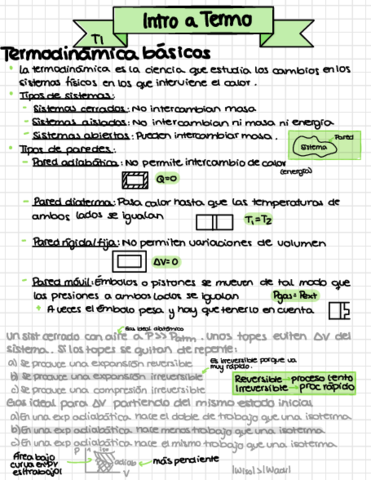 Intro a Termo
T1
Termodinámica básicos
• La termodinámica es la ciencia que estudia los cambios en los
sistemas físicos en los que interviene el calor.
• Tipos de sistemas:
- Sistemas cerrados: No intercambian masa
- Sistemas aislados: No intercambian ni masa ni energía
- Sistemas abiertos: Pueden intercambiar masa.
Sistema
Pared
• Tipos de paredes:
- Pared adiabática: No permite intercambio de calor
(energía)
Q=0
- Pared diaterma: Pasa calor hasta que las temperaturas de
ambos lados se igualan
T1=T2
- Pared rígida/fija: No permiten variaciones de volumen
ΔV=0
- Pared móvil: émbolos o pistones se mueven de tal modo que
las presiones a ambos lados se igualan
Pgas = Pext
* A veces el émbolo pesa y hay que tenerlo en cuenta
Gas ideal
Un sist cerrado con aire a P>>Patm. Unos topes evitan ΔV del
sistema. Si los topes se quitan de repente:
a) Se produce una expansión reversible
Es irreversible porque va
muy rápido.
b) Se produce una expansión irreversible
c) Se produce una compresión irreversible
Reversible proceso lento
Irreversible proc rápido
Gas ideal para ΔV partiendo del mismo estado inicial
a) En una exp adiabática hace el doble de trabajo que una isoterma.
b) En una exp adiabática hace menos trabajo que una isoterma
c) En una exp adiabática hace el mismo trabajo que una isoterma.
Área bajo
curva en PV
es trabajo
P
isot
adiab
V
más pendiente